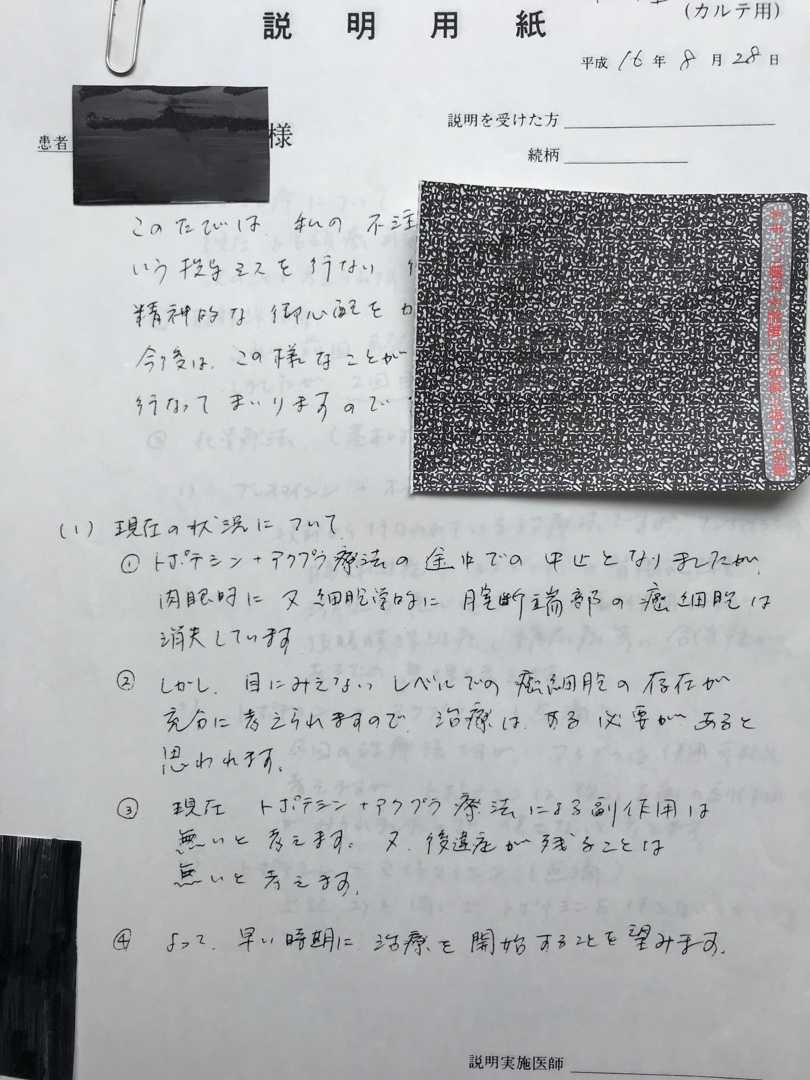 (カルテ用)
説明用紙
平成 16 年 8 月 28 日
患者 様
説明を受けた方
続柄
このたびは、私の不注
いう投与ミスを行ない
精神的な御心配をか
今後は、この様なことが
行なってまいりますので
(1) 現在の状況について
① トポテシン+アクプラ療法の途中での中止となりましたが、
肉眼的に又細胞学的に腟断端部の癌細胞は
消失しています
② しかし、目にみえないレベルでの癌細胞の存在が
充分に考えられますので、治療は、ある必要があると
思われます。
③ 現在 トポテシン+アクプラ療法による副作用は
無いと考えます。又、後遺症が残ることは
無いと考えます。
④ よって、早い時期に治療を開始することを望みます。
説明実施医師